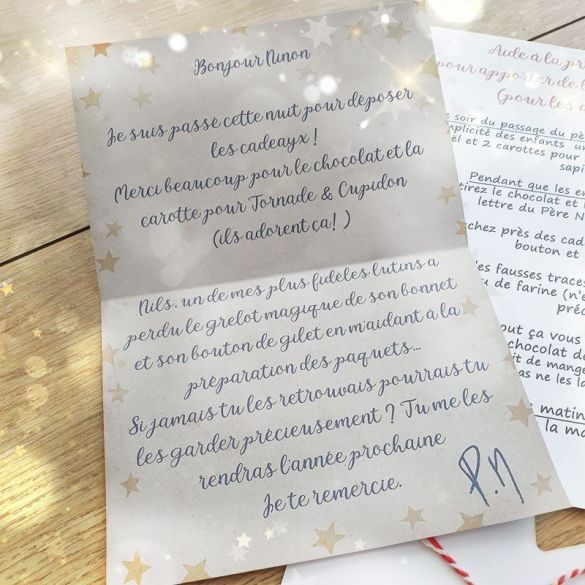 Bonjour Ninon
Je suis passé cette nuit pour déposer
les cadeaux !
Merci beaucoup pour le chocolat et la
carotte pour Tornade & Cupidon
(ils adorent ça! )
Nils, un de mes plus fidèles lutins a
perdu le grelot magique de son bonnet
et son bouton de gilet en m'aidant à la
préparation des paquets...
Si jamais tu les retrouvais pourrais tu
les garder précieusement ? Tu me les
rendras l'année prochaine
Je te remercie.
P.N
Aide à la pr
pour apporter de l
(pour les
soir du passage du pè
mplicité des enfants un
ël et 2 carottes pour
sapi
Pendant que les en
tirez le chocolat et
lettre du Père N
chez près des cad
bouton et
les fausses traces
u de farine (n'
préc
out ça vous
chocolat d
it de mange
as ne les la
matin
la mo